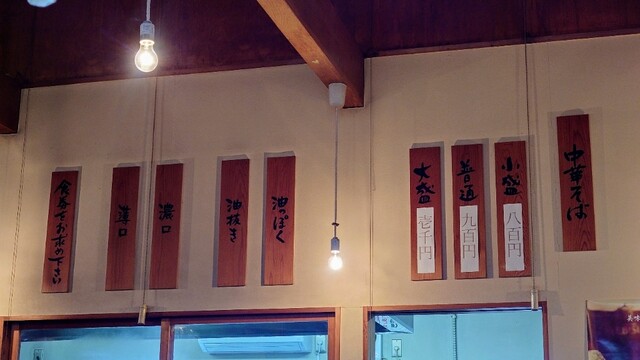 中華そば
小盛 八百円
普通 九百円
大盛 壱千円
油っぽく
油抜き
濃口
薄口
食券をお求め下さい